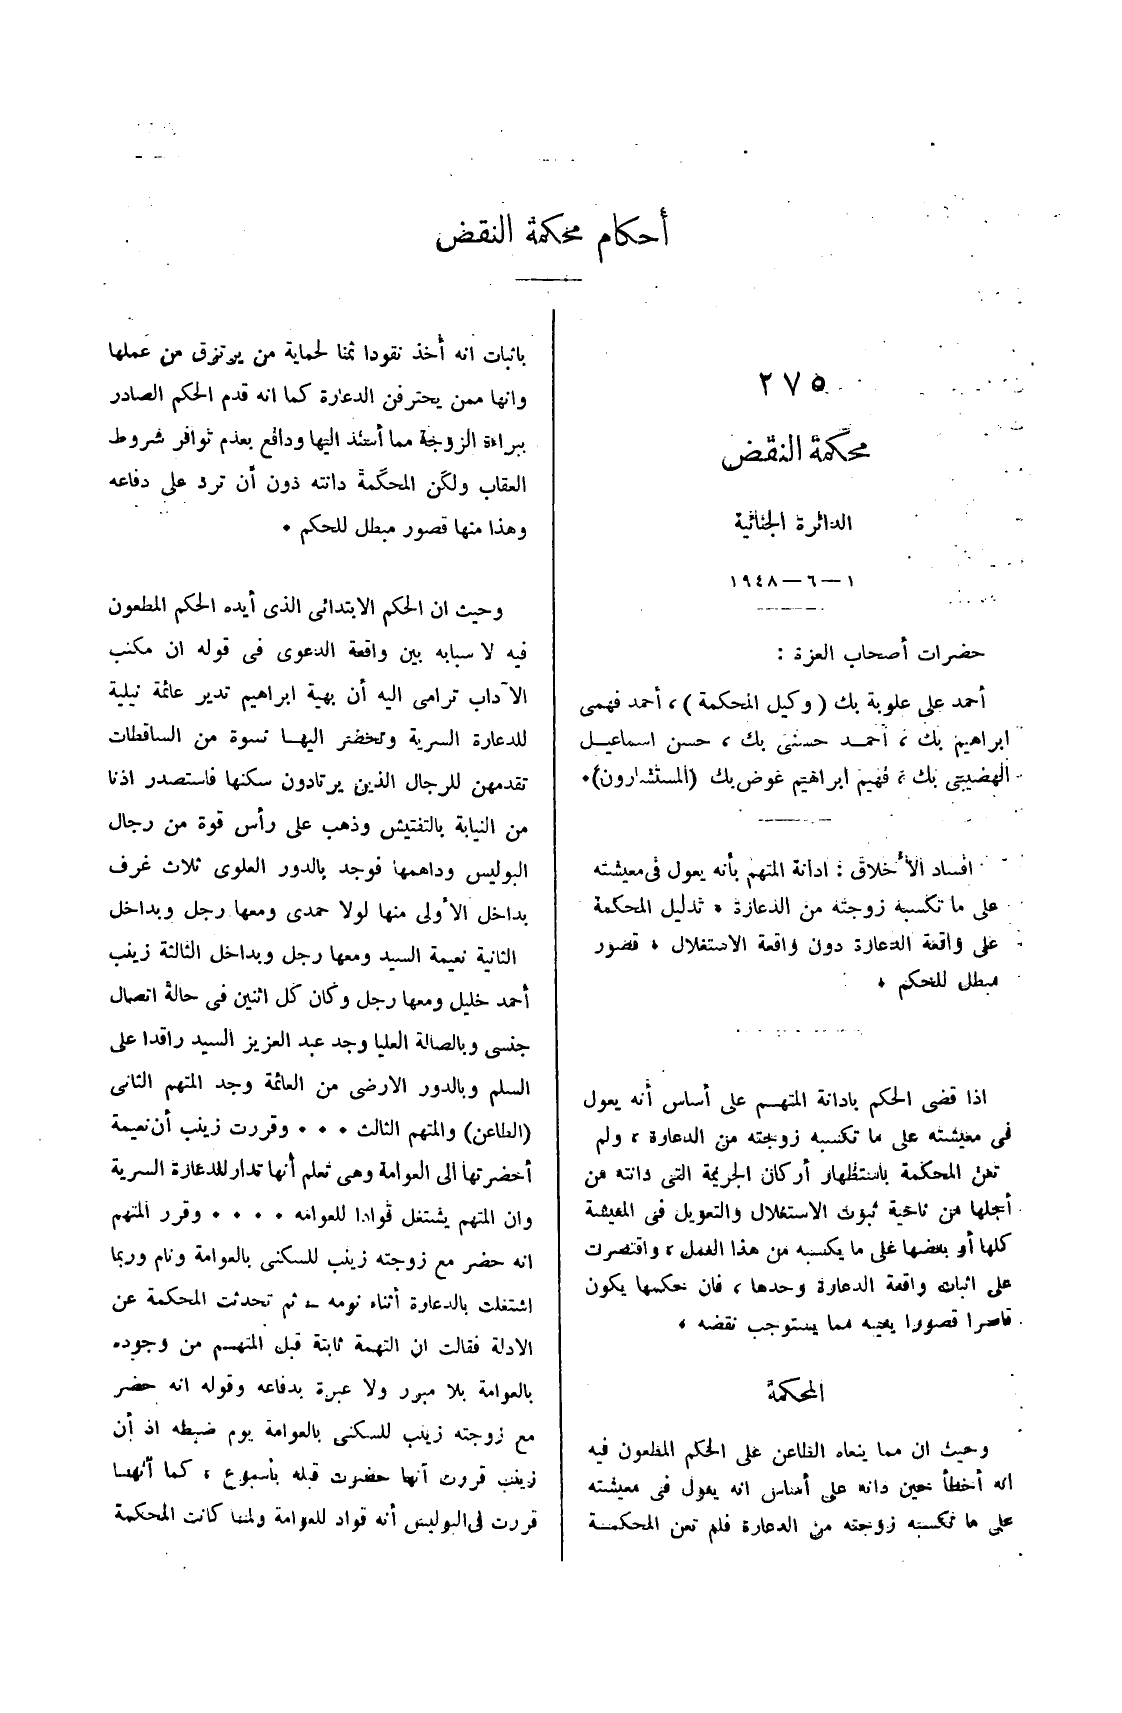 أحكام محكمة النقض
٢٧٥
محكمة النقض
الدائرة الجنائية
١ – ٦ – ١٩٤٨
حضرات أصحاب العزة :
أحمد على علوبة بك ( وكيل المحكمة ) ، أحمد فهمى
ابراهيم بك ، أحمد حسنى بك ، حسن اسماعيل
الهضيبى بك ، فهيم ابراهيم عوض بك (المستشارون).
افساد الأخلاق : ادانة المتهم بأنه يعول فى معيشته
على ما تكسبه زوجته من الدعارة . تدليل المحكمة
على واقعة الدعارة دون واقعة الاستغلال . قصور
مبطل للحكم .
اذا قضى الحكم بادانة المتهم على أساس أنه يعول
فى معيشته على ما تكسبه زوجته من الدعارة ، ولم
تعن المحكمة باستظهار أركان الجريمة التى دانته من
أجلها من ناحية ثبوت الاستغلال والتعويل فى المعيشة
كلها أو بعضها على ما يكسبه من هذا العمل ، واقتصرت
على اثبات واقعة الدعارة وحدها ، فان حكمها يكون
قاصرا قصورا يعيبه مما يستوجب نقضه .
المحكمة
وحيث ان مما ينعاه الطاعن على الحكم المطعون فيه
انه أخطأ حين دانه على أساس انه يعول فى معيشته
على ما تكسبه زوجته من الدعارة فلم تعن المحكمة
باثبات انه أخذ نقودا ثمنا لحماية من يرتزق من عملها
وانها ممن يحترفن الدعارة كما انه قدم الحكم الصادر
ببراءة الزوجة مما أسند اليها ودافع بعدم توافر شروط
العقاب ولكن المحكمة دانته دون أن ترد على دفاعه
وهذا منها قصور مبطل للحكم .
وحيث ان الحكم الابتدائى الذى أيده الحكم المطعون
فيه لاسبابه بين واقعة الدعوى فى قوله ان مكتب
الآداب ترامى اليه أن بهية ابراهيم تدير عائمة نيلية
للدعارة السرية وتحضر اليها نسوة من الساقطات
تقدمهن للرجال الذين يرتادون سكنها فاستصدر اذنا
من النيابة بالتفتيش وذهب على رأس قوة من رجال
البوليس وداهمها فوجد بالدور العلوى ثلاث غرف
بداخل الأولى منها لولا حمدى ومعها رجل وبداخل
الثانية نعيمة السيد ومعها رجل وبداخل الثالثة زينب
أحمد خليل ومعها رجل وكان كل اثنين فى حالة اتصال
جنسى وبالصالة العليا وجد عبد العزيز السيد راقدا على
السلم وبالدور الارضى من العائمة وجد المتهم الثانى
(الطاعن) والمتهم الثالث . . . وقررت زينب أن نعيمة
أحضرتها الى العوامة وهى تعلم أنها تدار للدعارة السرية
وان المتهم يشتغل قوادا للعوامه . . . . وقرر المتهم
انه حضر مع زوجته زينب للسكنى بالعوامة ونام وربما
اشتغلت بالدعارة أثناء نومه – ثم تحدثت المحكمة عن
الادلة فقالت ان التهمة ثابتة قبل المتهم من وجوده
بالعوامة بلا مبرر ولا عبرة بدفاعه وقوله انه حضر
مع زوجته زينب للسكنى بالعوامة يوم ضبطه اذ أن
زينب قررت أنها حضرت قبله بأسبوع ، كما أنها
قررت فى البوليس أنه قواد للعوامة ولمّا كانت المحكمة